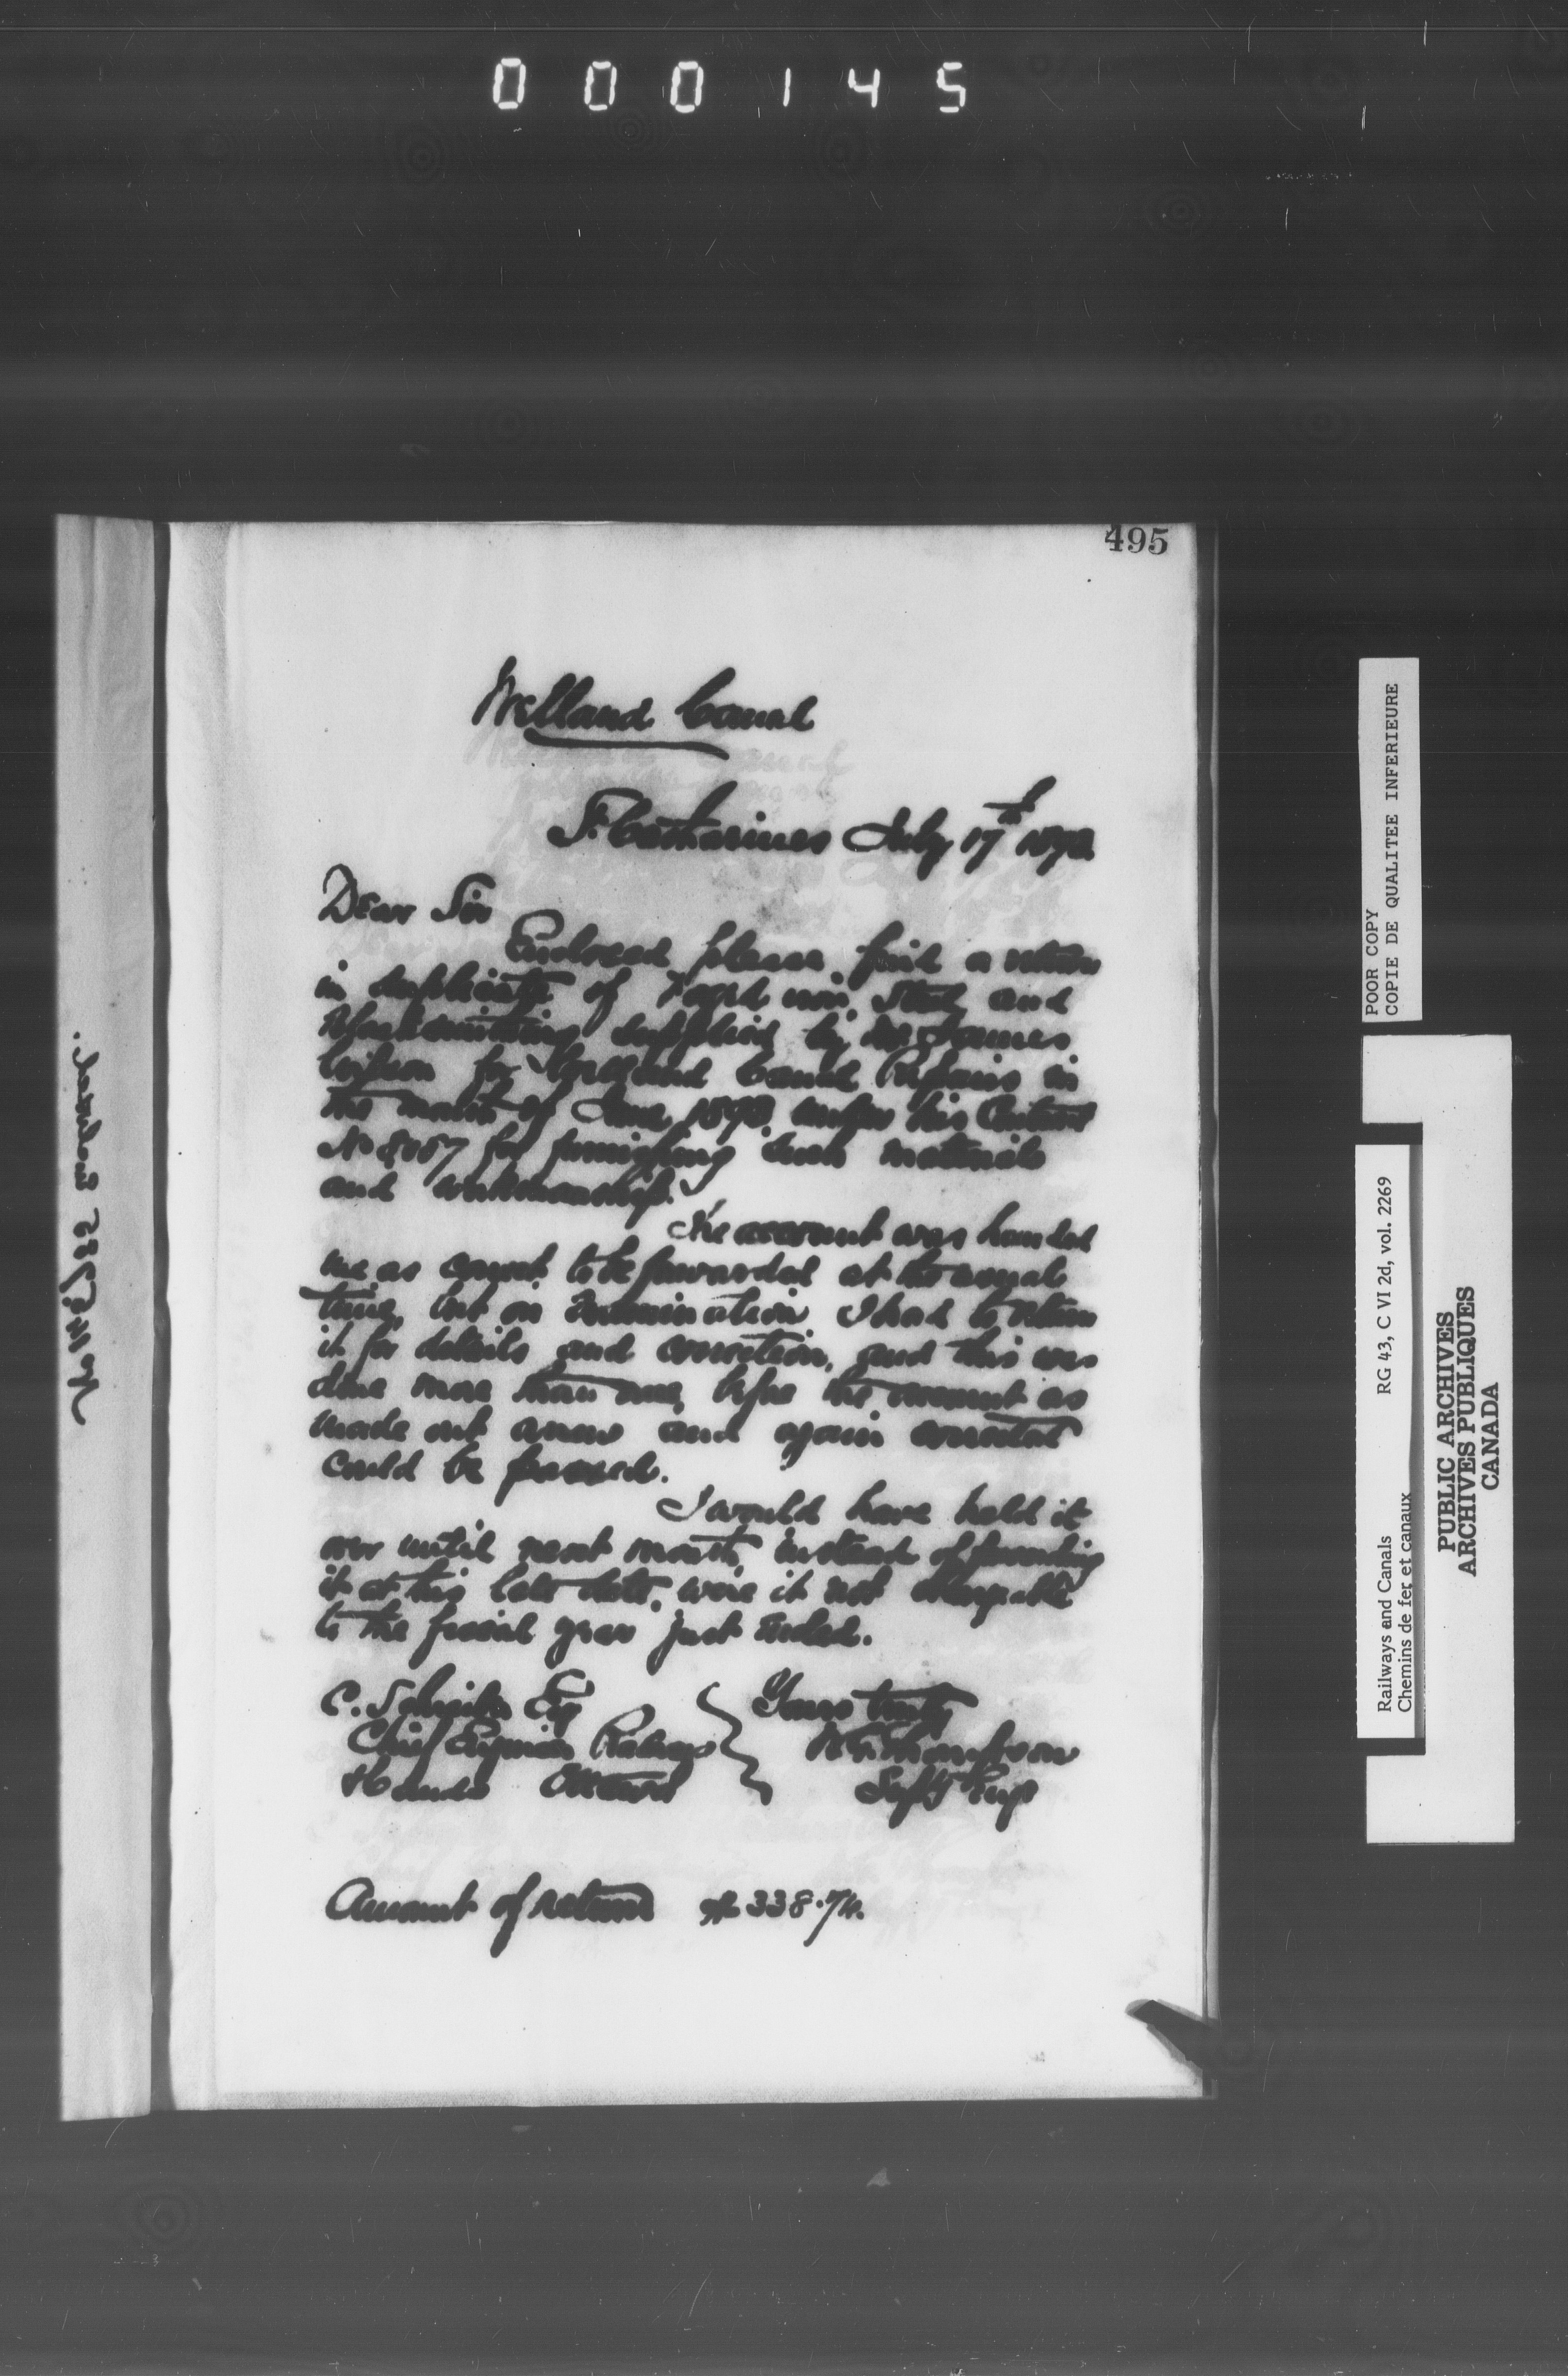 000145
495
Welland Canal
St. Catharines July 17th 1893.
Dear Sir
Enclosed please find a return
in duplicate of Forged iron, Steel and
Blacksmithing supplied by Mr James
Wilson for Welland Canal Repairs in
the month of June 1893 under his Contract
No for furnishing such materials
and workmanship.
The account was handed
me as correct to be forwarded at the usual
time, but on examination I had to return
it for details and correction, and this was
done more than once, before the account as
made out anew and again corrected
could be passed.
I would have held it
over until next month, instead of forwarding
it at this late date, were it not chargeable
to the fiscal year just ended.
C. Schreiber Esq
Chief Engineer Railways
Canals Ottawa
Yours truly
W.G. Thompson
Supt'g Engr
Amount of return $338.74.
POOR COPY
COPIE DE QUALITEE INFERIEURE
Railways and Canals
Chemins de fer et canaux
RG 43, C VI 2d, vol. 2269
PUBLIC ARCHIVES
ARCHIVES PUBLIQUES
CANADA